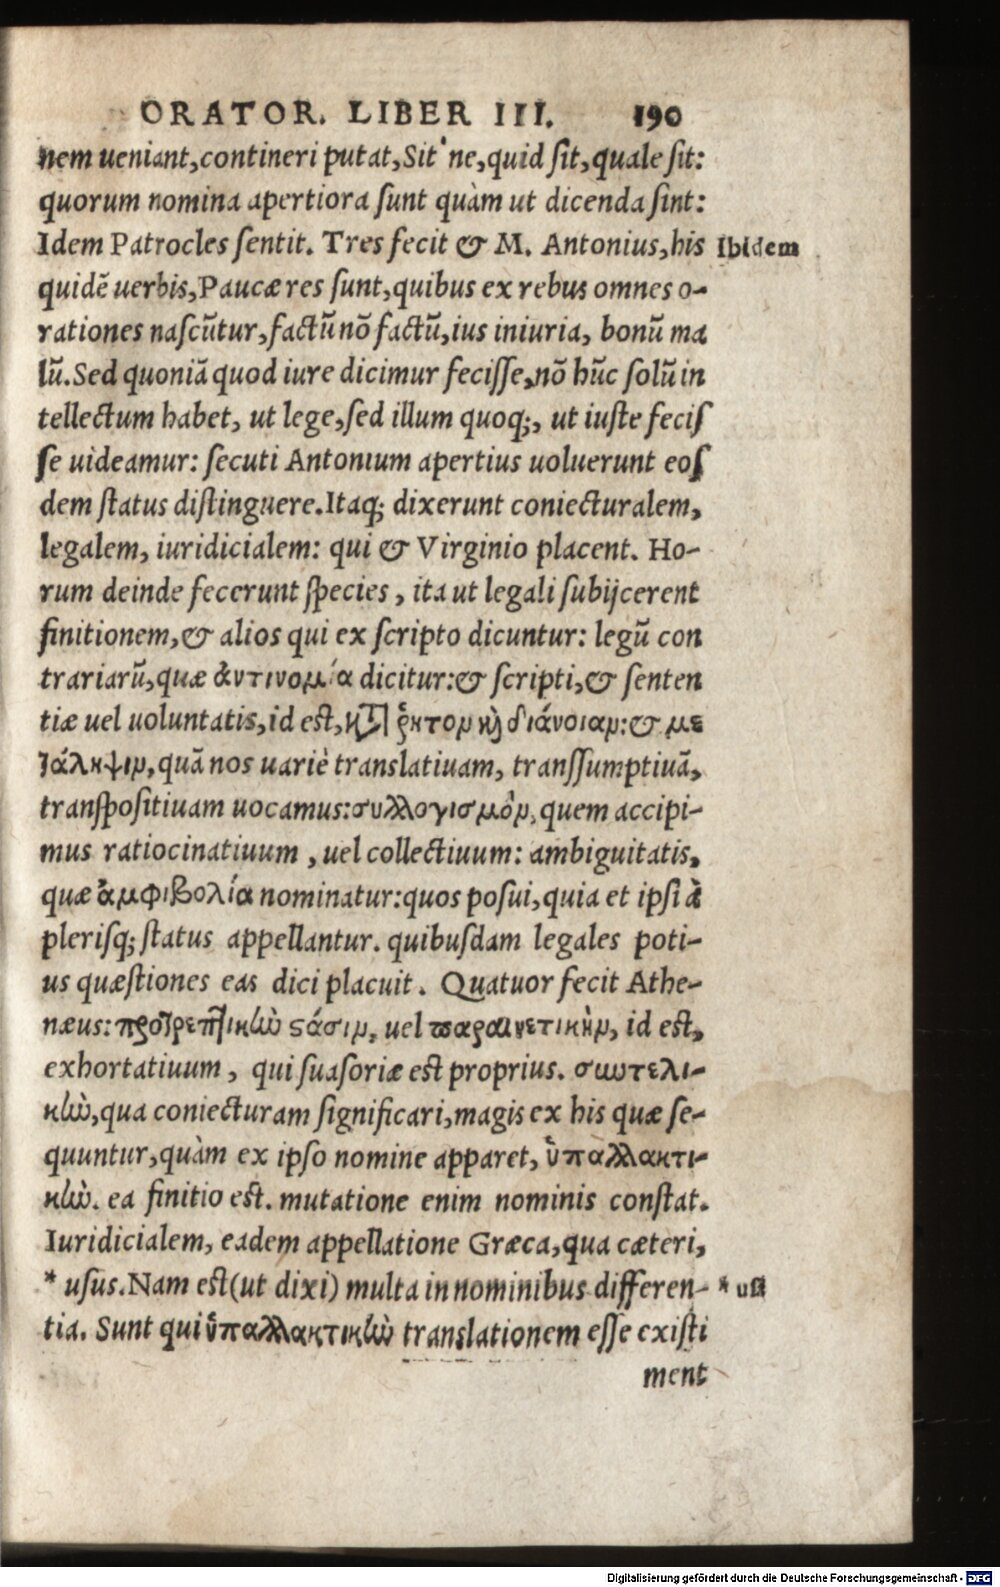 ORATOR. LIBER III. 190
nem ueniant,contineri putat,Sit'ne,quid ſit,quale ſit:
quorum nomina apertiora ſunt quàm ut dicenda ſint:
Idem Patrocles ſentit. Tres fecit & M. Antonius,his Ibidem
quidē uerbis,Paucæ res ſunt,quibus ex rebus omnes o-
rationes naſcūtur,factū nō factū,ius iniuria, bonū ma
lū.Sed quoniā quod iure dicimur feciſſe,nō hūc ſolū in
tellectum habet, ut lege,ſed illum quoq;, ut iuſte feciſ
ſe uideamur: ſecuti Antonium apertius uoluerunt eoſ
dem ſtatus diſtinguere.Itaq; dixerunt coniecturalem,
legalem, iuridicialem: qui & Virginio placent. Ho-
rum deinde fecerunt ſpecies, ita ut legali ſubijcerent
finitionem,& alios qui ex ſcripto dicuntur: legū con
trariarū,quæ ἀντινομία dicitur:& ſcripti,& ſenten
tiæ uel uoluntatis,id eſt,κτ ῥητὸν κὶ διάνοιαν:& με
τάληψιν,quā nos uariè translatiuam, transſumptiuā,
tranſpoſitiuam uocamus:συλλογισμὸν,quem accipi-
mus ratiocinatiuum, uel collectiuum: ambiguitatis,
quæ ἀμφιβολία nominatur:quos poſui,quia et ipſi à
pleriſq; ſtatus appellantur. quibuſdam legales poti-
us quæſtiones eas dici placuit. Quatuor fecit Athe-
næus:προτρεπτικὼ ϛάσιν, uel παραινετικὴν, id eſt,
exhortatiuum, qui ſuaſoriæ eſt proprius. σωτελι-
κὼ,qua coniecturam ſignificari,magis ex his quæ ſe-
quuntur,quàm ex ipſo nomine apparet, ὑπαλλακτι-
κὼ. ea finitio eſt. mutatione enim nominis conſtat.
Iuridicialem, eadem appellatione Græca,qua cæteri,
* uſus.Nam eſt(ut dixi) multa in nominibus differen- * uſi
tia. Sunt qui ὑπαλλακτικὼ translationem eſſe exiſti
ment
Digitalisierung gefördert durch die Deutsche Forschungsgemeinschaft - DFG